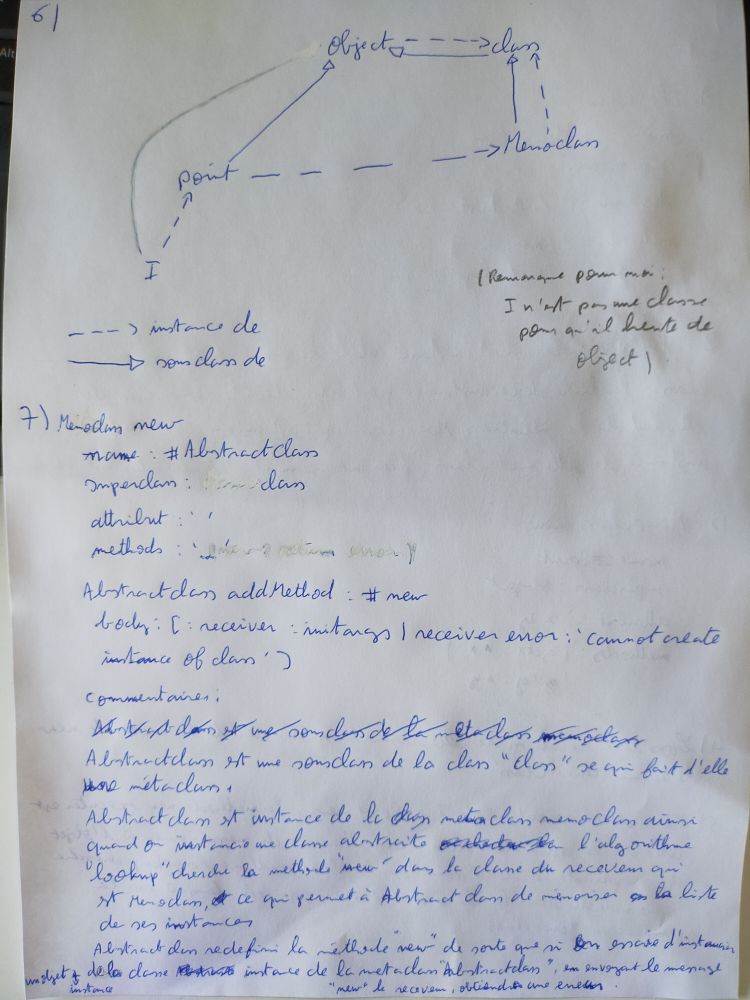 6/
Object class
Memoclass
point
I
(Remarque pour moi :
I n'est pas une classe
pour qu'il hérite de
object)
instance de
sousclass de
7) Memoclass new
name : #Abstractclass
superclass : class
attribut : ' '
methods : '
Abstractclass addMethod : #new
body : [ : receiver : initargs | receiver error : 'cannot create
instance of class' ]
commentaires :
Abstract class est une sousclass de la metaclass memoclass
Abstractclass est une sousclass de la class "class" se qui fait d'elle
une métaclass.
Abstractclass est instance de la class metaclass memoclass ainsi
quand on instancie une classe abstraite l'algorithme
"lookup" cherche la methode "new" dans la classe du receveur qui
est Memoclass, ce qui permet à Abstractclass de memoriser la liste
de ses instances
Abstractclass redefini la méthode "new" de sorte que si on essaie d'instancier
un objet de la classe instance de la metaclass "Abstractclass", en envoyant le message
instance "new" le receveur, obtiendra une erreur.